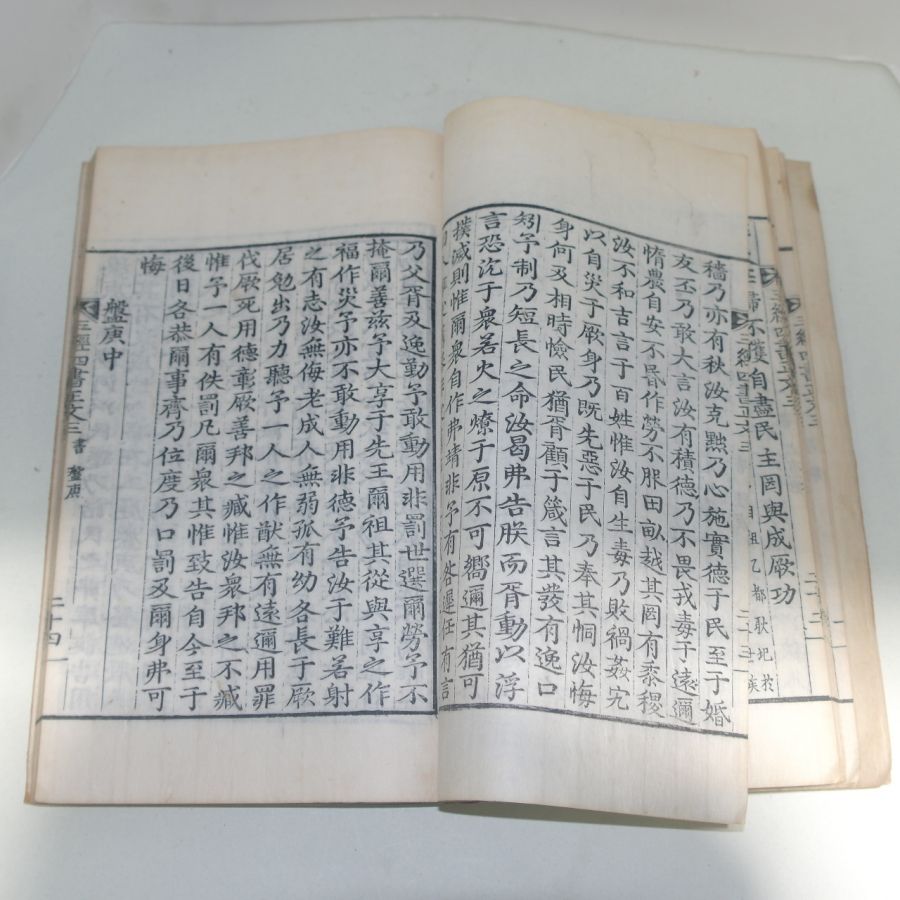 三經四書正文三
婦不獲自盡民主罔與成厥功
祖乙都耿圮於
三經四書正文三
穡乃亦有秋汝克黜乃心施實德于民至于婚
友丕乃敢大言汝有積德乃不畏戎毒于遠邇
惰農自安不昬作勞不服田畝越其罔有黍稷
汝不和吉言于百姓惟汝自生毒乃敗禍姦宄
以自災于厥身乃既先惡于民乃奉其恫汝悔
身何及相時憸民猶胥顧于箴言其發有逸口
矧予制乃短長之命汝曷弗告朕而胥動以浮
言恐沈于衆若火之燎于原不可嚮邇其猶可
撲滅則惟爾衆自作弗靖非予有咎遲任有言
乃父胥及逸勤予敢動用非罰世選爾勞予不
掩爾善茲予大享于先王爾祖其從與享之作
福作災予亦不敢動用非德予告汝于難若射
之有志汝無侮老成人無弱孤有幼各長于厥
居勉出乃力聽予一人之作猷無有遠邇用罪
伐厥死用德彰厥善邦之臧惟汝衆邦之不臧
惟予一人有佚罰凡爾衆其惟致告自今至于
後日各恭爾事齊乃位度乃口罰及爾身弗可
悔
盤庚中
三經四書正文三 書 盤庚 二十四